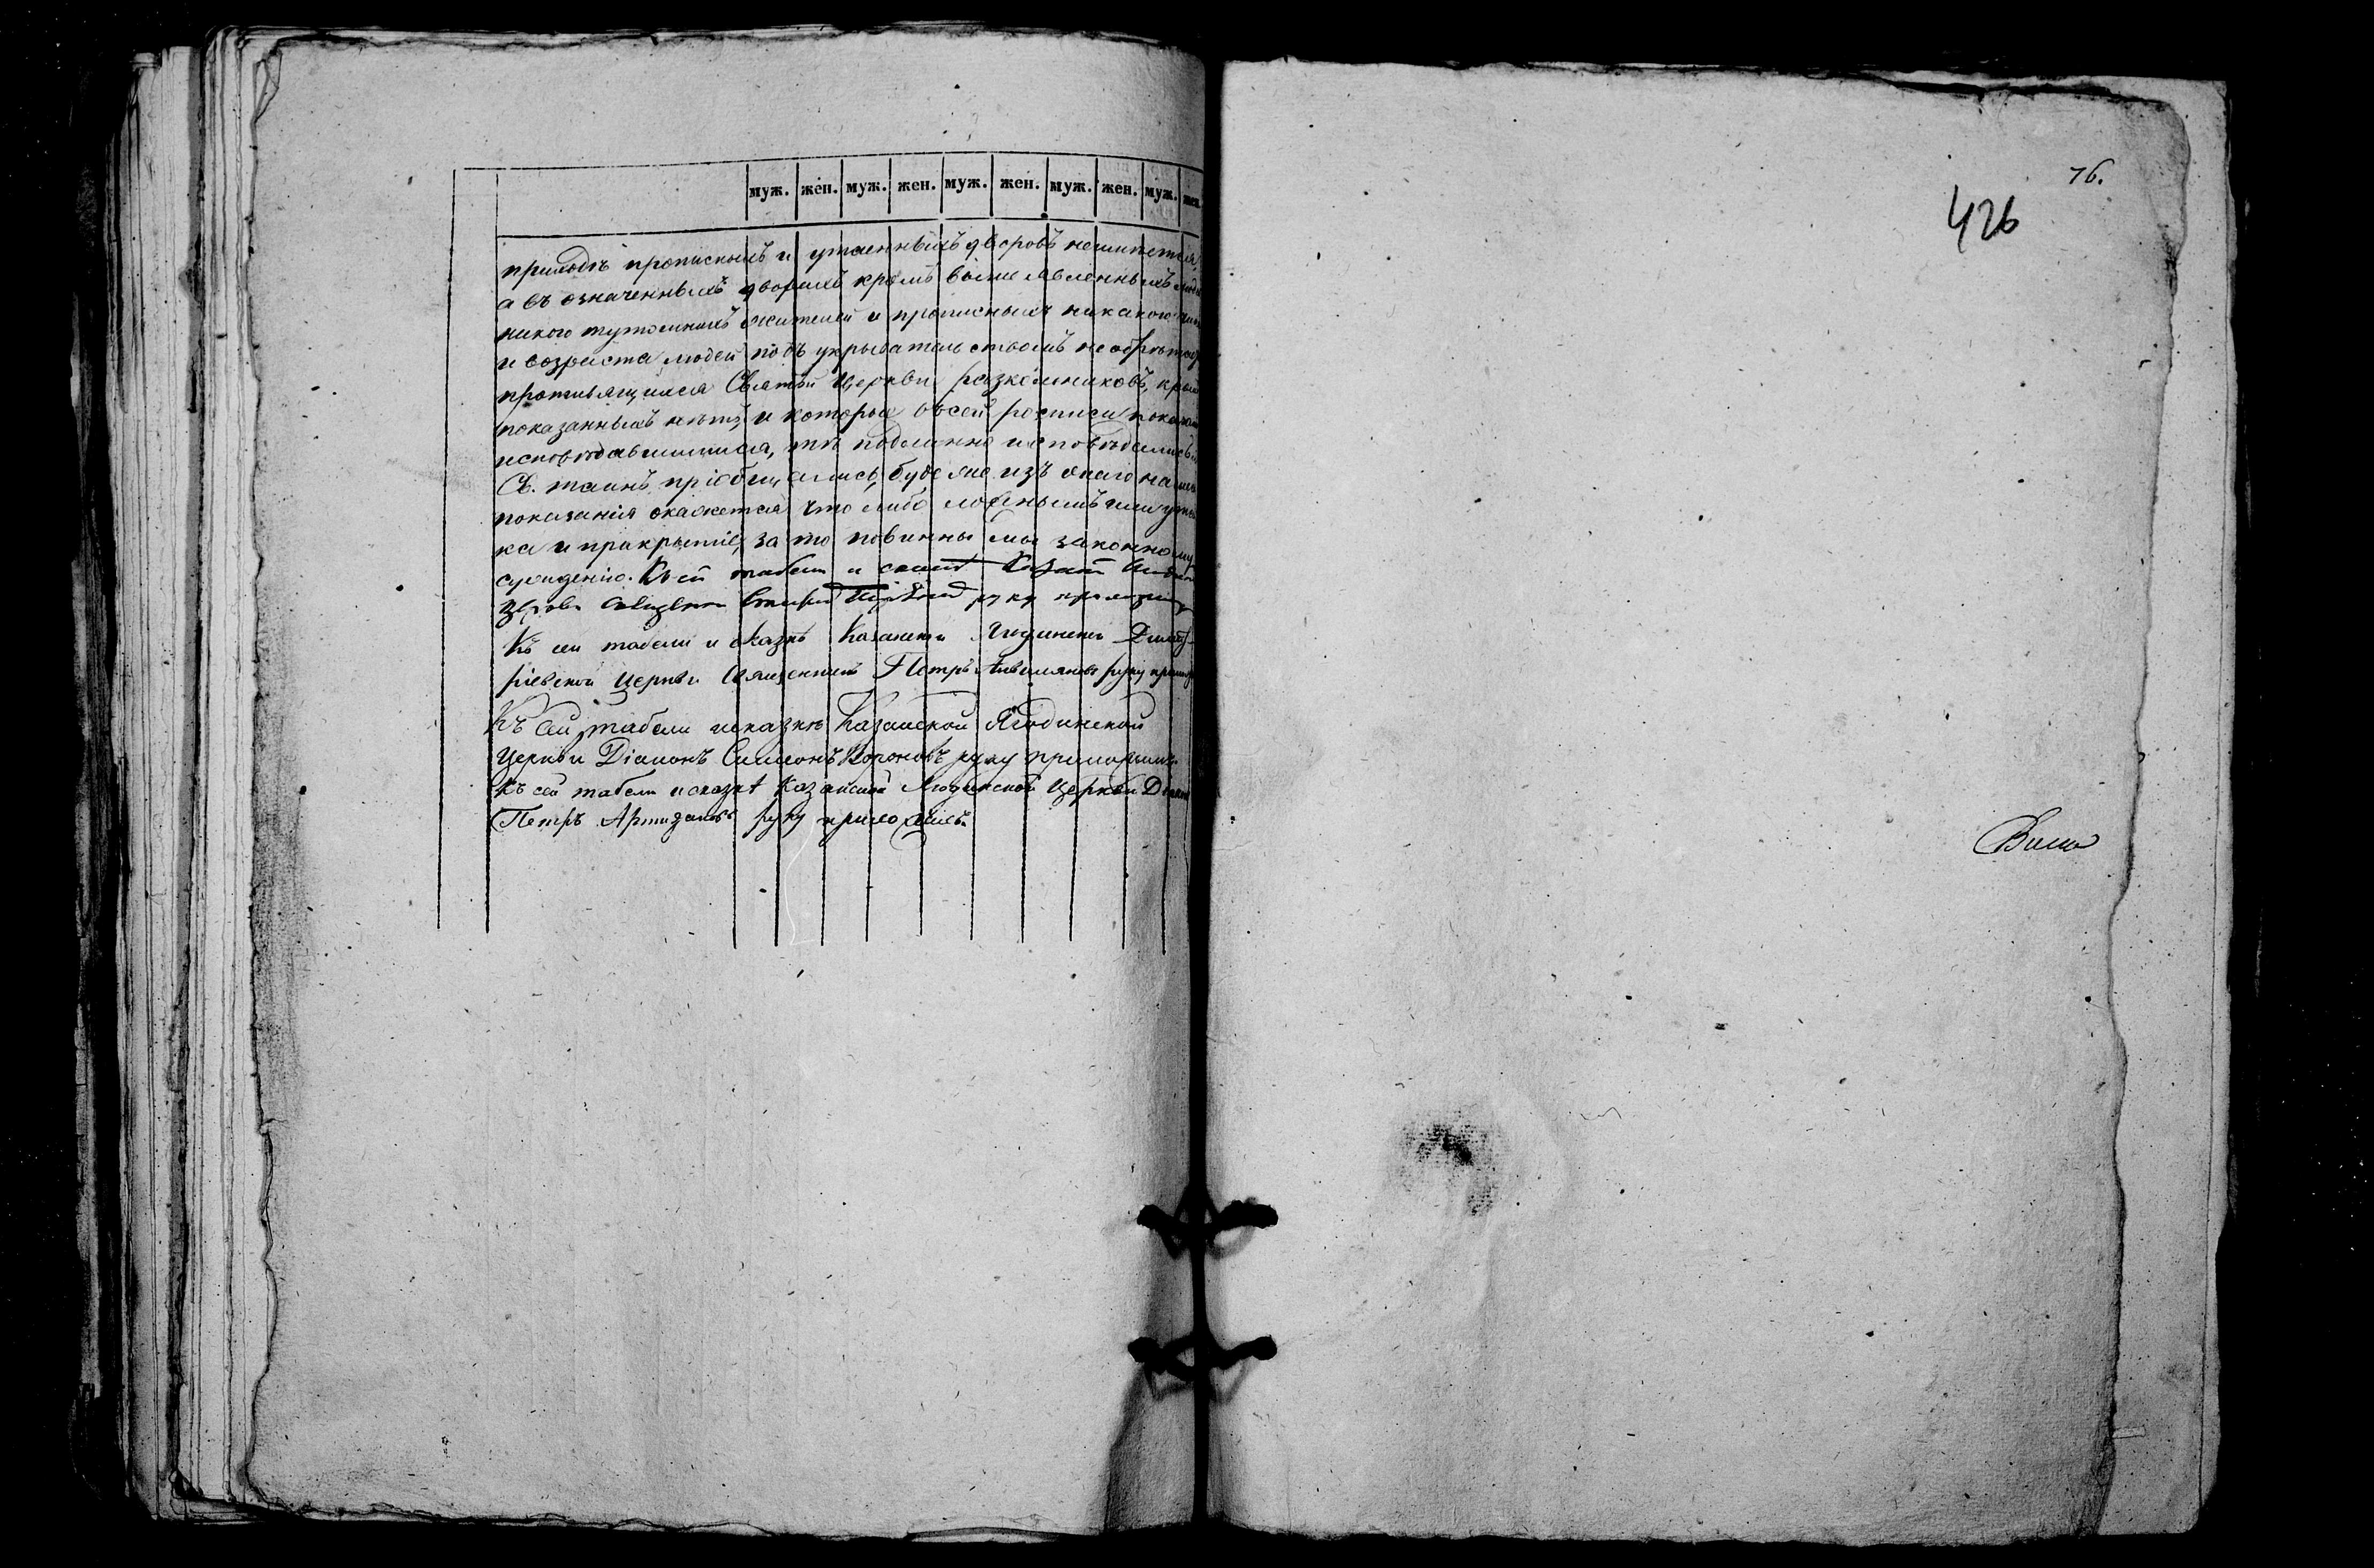 муж. жен. муж. жен. муж. жен. муж. жен. муж. жен.
приходѣ прописныхъ и утаенныхъ дворовъ неимѣется,
а въ означенныхъ дворахъ кромѣ выше явленныхъ
никого тутошнихъ жителей и прописныхъ никакого чина
и возраста людей подъ укрывательствомъ не
противящихся Святой Церкви разкольниковъ, кромѣ
показанныхъ нѣтъ, и которые въ сей росписи
исповѣдавшимися, тѣ подлинно исповѣдались и
Св. таинъ пріобщались, буде же изъ онаго
показанія окажется что либо ложнымъ или
ка и прикрытіе, за то повинны мы законному
сужденію. Къ сей табели и
руку приложилъ
Къ сей табели и сказкѣ Казанской Ягодинской Димит-
ріевской Церкви Священникъ Петръ руку
Къ сей табели и сказкѣ Казанской Ягодинской
Церкви Діаконъ Симеонъ Вороновъ руку приложилъ.
Къ сей табели и сказкѣ Казанской Ягодинской Церкви
Петръ руку приложилъ.
76.
426